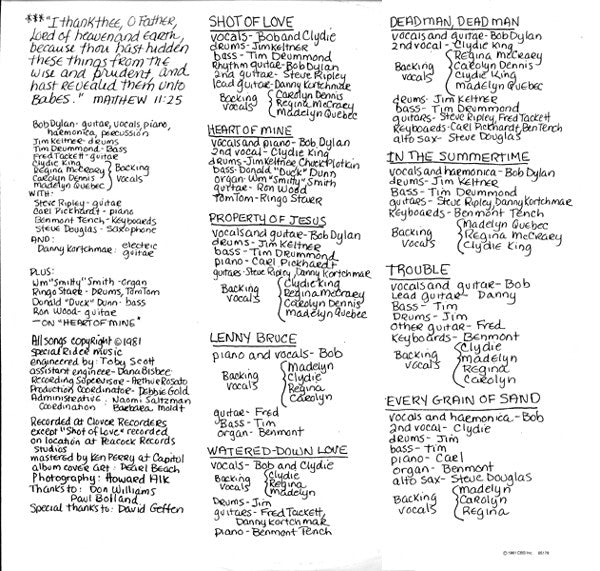 ***"I thank thee, O Father,
Lord of heaven and Earth,
because thou hast hidden
these things from the
wise and prudent, and
hast revealed them unto
Babes." MATTHEW 11:25
Bob Dylan - guitar, vocals, piano,
harmonica, percussion
Jim Keltner - drums
Tim Drummond - Bass
Fred Tackett - guitar
Clydie King
Regina McCreary
Carolyn Dennis
Madelyn Quebec
Backing
Vocals
WITH:
Steve Ripley - guitar
Carl Pickhardt - piano
Benmont Tench - Keyboards
Steve Douglas - saxophone
AND:
Danny Kortchmar: electric
guitar
PLUS:
Wm "Smitty" Smith - Organ
Ringo Starr - Drums, TomTom
Donald "Duck" Dunn - bass
Ron Wood - guitar
- ON "HEART OF MINE"
All songs copyright ©1981
Special Rider Music
engineered by: Toby Scott
assistant engineer - Dana Bisbee
Recording Supervisor - Arthur Rosato
Production Coordinator - Debbie Gold
Administrative: Naomi Saltzman
Coordination Barbara Moldt
Recorded at Clover Recorders
except "Shot of Love" recorded
on location at Peacock Records
Studios
mastered by Ken Perry at Capitol
album cover art: Pearl Beach
Photography: Howard Alk
Thanks to: Don Williams
Paul Bolland
Special thanks to: David Geffen
SHOT OF LOVE
vocals - Bob and Clydie
drums - Jim Keltner
bass - Tim Drummond
Rhythm guitar - Bob Dylan
2nd guitar - Steve Ripley
lead guitar - Danny Kortchmar
Backing
vocals
Carolyn Dennis
Regina McCraey
Madelyn Quebec
HEART OF MINE
vocals and piano - Bob Dylan
2nd vocal - Clydie King
drums - Jim Keltner Chuck Plotkin
bass - Donald "Duck" Dunn
organ - Wm "Smitty" Smith
guitar - Ron Wood
TomTom - Ringo Starr
PROPERTY OF JESUS
vocals and guitar - Bob Dylan
drums - Jim Keltner
bass - Tim Drummond
piano - Carl Pickhardt
guitars - Steve Ripley, Danny Kortchmar
Backing
vocals
Clydie King
Regina McCraey
Carolyn Dennis
Madelyn Quebec
LENNY BRUCE
piano and vocals - Bob
Backing
vocals
Madelyn
Clydie
Regina
Carolyn
guitar - Fred
Bass - Tim
organ - Benmont
WATERED-DOWN LOVE
vocals - Bob and Clydie
Backing
vocals
Clydie
Regina
Madelyn
Drums - Jim
guitars - Fred Tackett,
Danny Kortchmar
piano - Benmont Tench
DEAD MAN, DEAD MAN
vocals and guitar - Bob Dylan
2nd vocal - Clydie King
Backing
vocals
Regina McCreary
Carolyn Dennis
Clydie King
Madelyn Quebec
drums - Jim Keltner
bass - Tim Drummond
guitars - Steve Ripley, Fred Tackett
Keyboards - Carl Pickhardt, Ben Tench
alto sax - Steve Douglas
IN THE SUMMERTIME
vocals and harmonica - Bob Dylan
drums - Jim Keltner
Bass - Tim Drummond
guitars - Steve Ripley, Danny Kortchmar
Keyboards - Benmont Tench
Backing
vocals
Madelyn Quebec
Regina McCreary
Clydie King
TROUBLE
vocals and guitar - Bob
Lead guitar - Danny
Bass - Tim
Drums - Jim
other guitar - Fred
Keyboards - Benmont
Backing
vocals
Clydie
Madelyn
Regina
Carolyn
EVERY GRAIN OF SAND
vocals and harmonica - Bob
2nd vocal - Clydie
drums - Jim
bass - Tim
piano - Carl
organ - Benmont
alto sax - Steve Douglas
Backing
vocals
Madelyn
Carolyn
Regina
© 1981 CBS Inc.